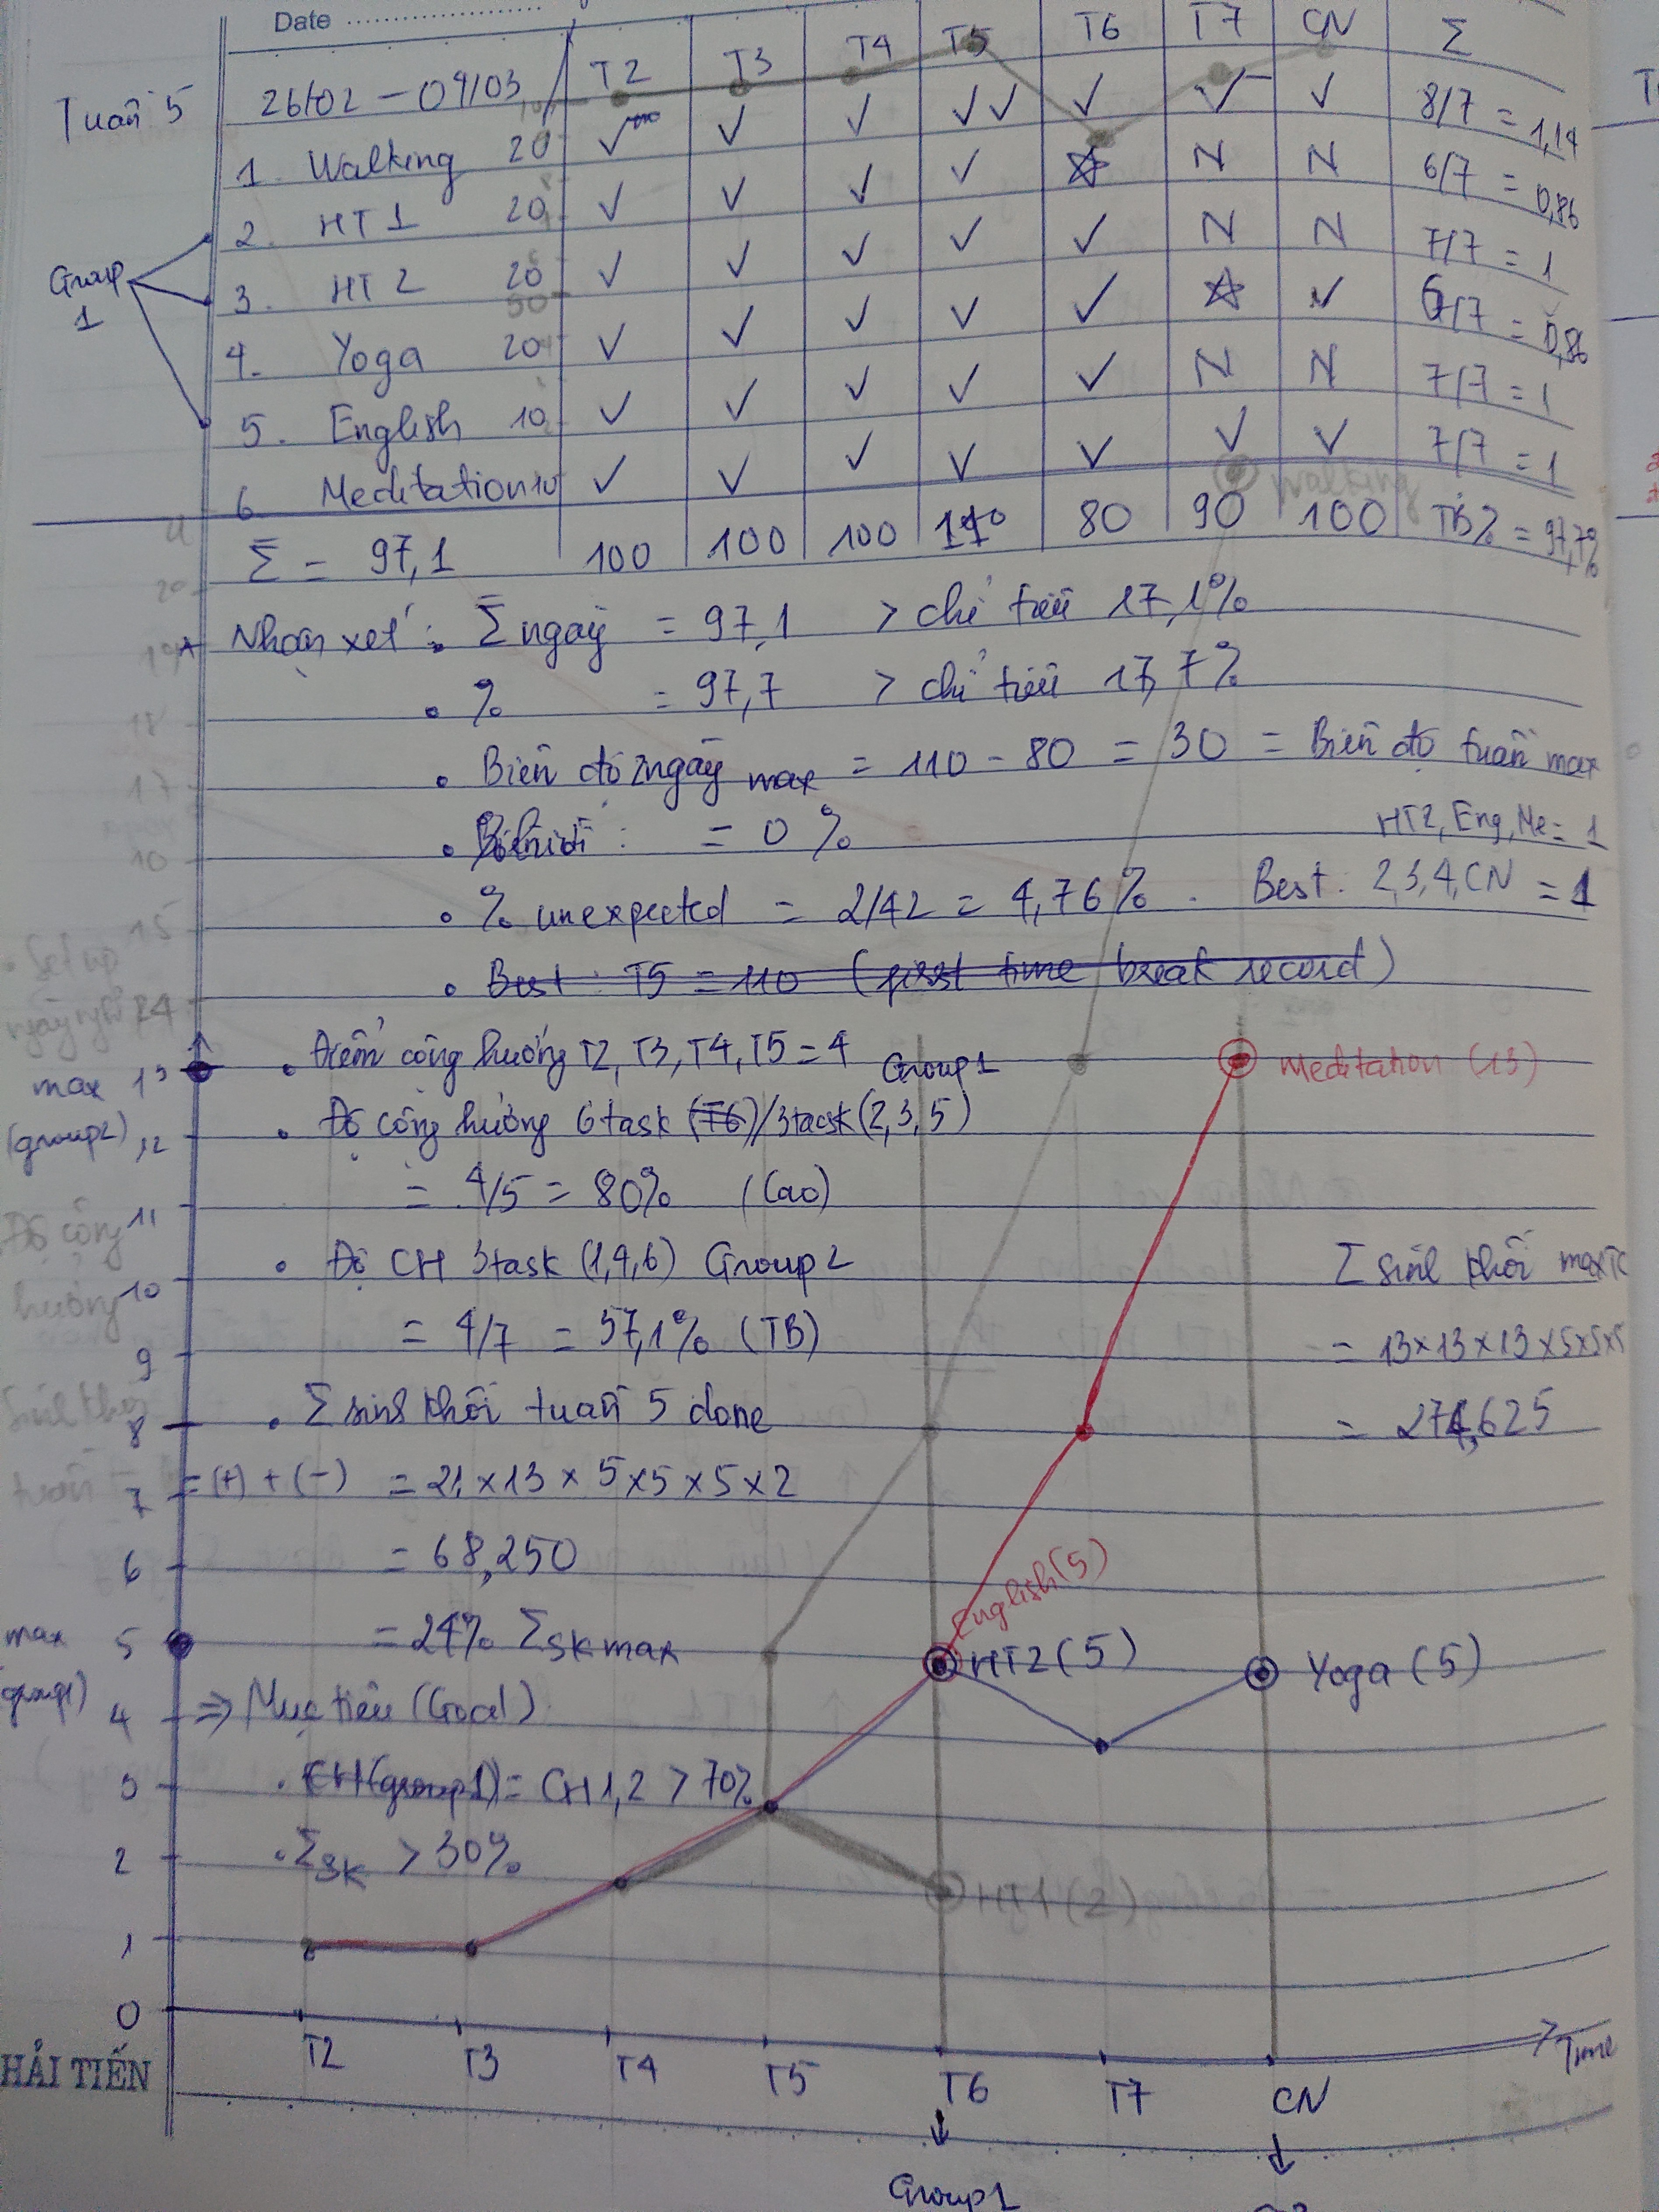 Date
T2 T3 T4 T5 T6 T7 CN Σ
Tuần 5 26/02 - 04/03
1. Walking 20 ✓ ✓ ✓ ✓✓ ✓ ✓ ✓ 8/7 = 1,14
2. HT1 20 ✓ ✓ ✓ ✓ ☆ N N 6/7 = 0,86
Group 1
3. HT2 20 ✓ ✓ ✓ ✓ ✓ N N 7/7 = 1
4. Yoga 20 ✓ ✓ ✓ ✓ ✓ ☆ ✓ 6/7 = 0,86
5. English 10 ✓ ✓ ✓ ✓ ✓ N N 7/7 = 1
6. Meditation 10 ✓ ✓ ✓ ✓ ✓ ✓ ✓ 7/7 = 1
Walking
Σ = 97,1 100 100 100 110 80 90 100 TB% = 97,7%
Nhận xét: Σ ngày = 97,1 > chỉ tiêu 17,1%
• % = 97,7 > chỉ tiêu 17,7%
• Biên độ Σngày max = 110 - 80 = 30 = Biên độ tuần max
• = 0 %
HT2, Eng, Me = 1
• % unexpected = 2/42 = 4,76%. Best: 2,3,4,CN = 1
• Best: T5 = 110 (first time break record)
• Điểm cộng hưởng T2, T3, T4, T5 = 4
Group 1
max 13
Meditation (13)
(group2) 12
• Độ cộng hưởng 6task (T6)/3task(2,3,5)
= 4/5 = 80% (Cao)
Độ cộng hưởng
11
• Độ CH 3task (1,4,6) Group 2
Σ sinh khối max
10
= 4/7 = 57,1% (TB)
= 13×13×13×5×5×5
9
• Σ sinh khối tuần 5 done
= 274,625
8
= (+) + (-) = 21×13×5×5×5×2
7
= 68,250
6
English(5)
max 5
(group1)
= 24% ΣSK max
HT2(5)
Yoga (5)
4
⇒ Mục tiêu (Goal)
3
• CH(group1) = CH1,2 > 70%
2
• ΣSK > 30%
HT1(2)
1
0
T2 T3 T4 T5 T6 T7 CN Time
HẢI TIẾN
Group1